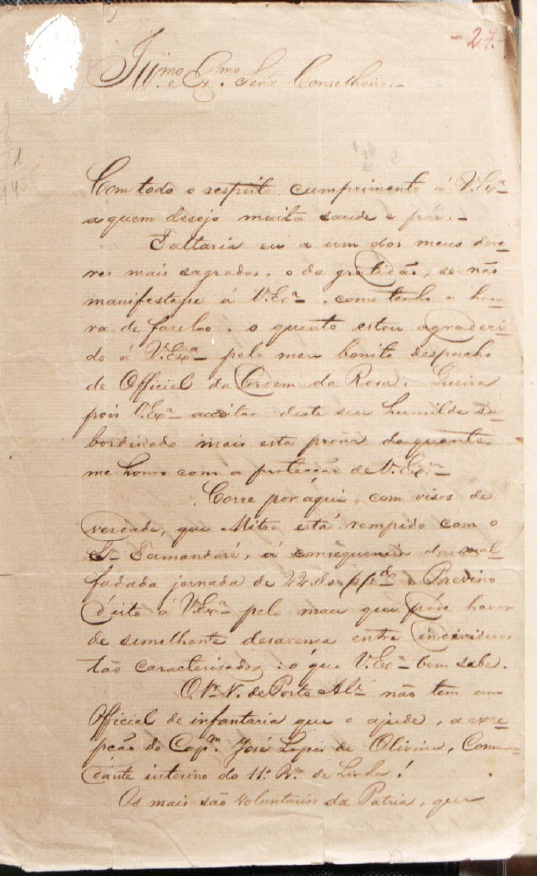 - 27.
Illmo. e Exmo. Senr. Conselheiro.-
Com todo o respeito cumprimento á V.Exa.
a quem desejo muita saude e paz.-
Faltaria eu a um dos meus deve-
res mais sagrados, o da gratidão, se não
manifestasse á V.Exa., como tenho a hon-
ra de fasel-o, o quanto estou agradeci-
do á V.Exa. pelo meu bonito despacho
de Official da Ordem da Rosa. Queira
pois V.Exa. aceitar deste seu humilde su-
bordinado mais esta prova do quanto
me honro com a protecção de V.Exa.-
Corre por aqui, com visos de
verdade, que Mitre está rompido com o
Sr. Tamandaré, á consequencia da mal-
fadada jornada de 22 do
isto á V.Exa. pelo mau que póde haver
de semelhante desavença entre individuos
tão caracterisados: o que V.Exa. bem sabe.
O de Porto Ale. não tem um
Official de infantaria que o ajude, a exce-
pção do Capm. José Lopes de Oliveira, Comman-
dante interino do 11º. Bm. de Linha!
Os mais são voluntarios da Patria, que